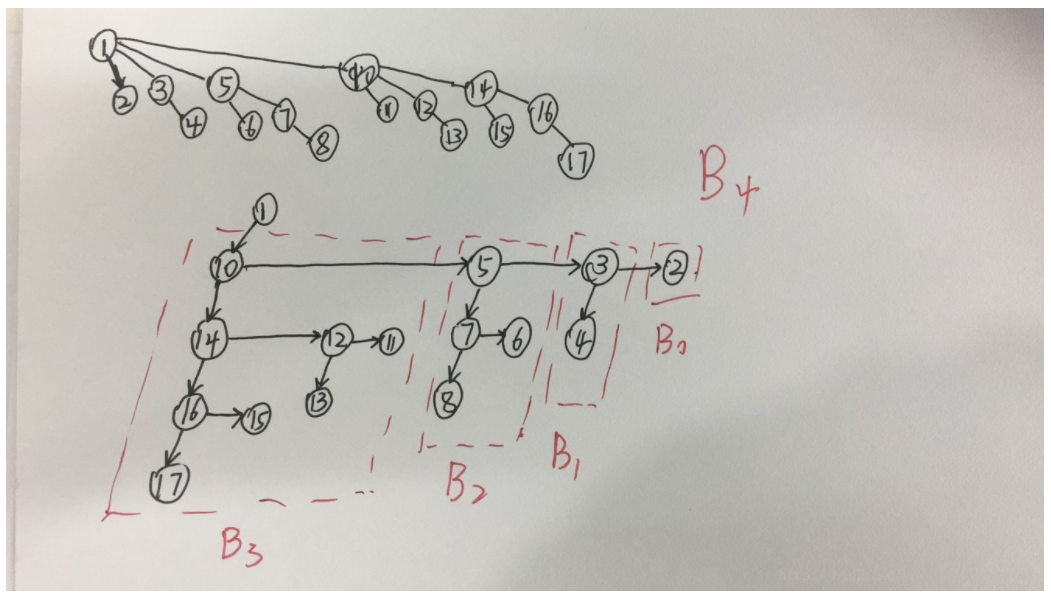 1
2 3 5 10 14
4 6 7 11 12 16
8 13 15
17
B₄
1
10 5 3 2
14 12 11 7 6 4 B₀
16 15 13 8
17 B₂ B₁
B₃